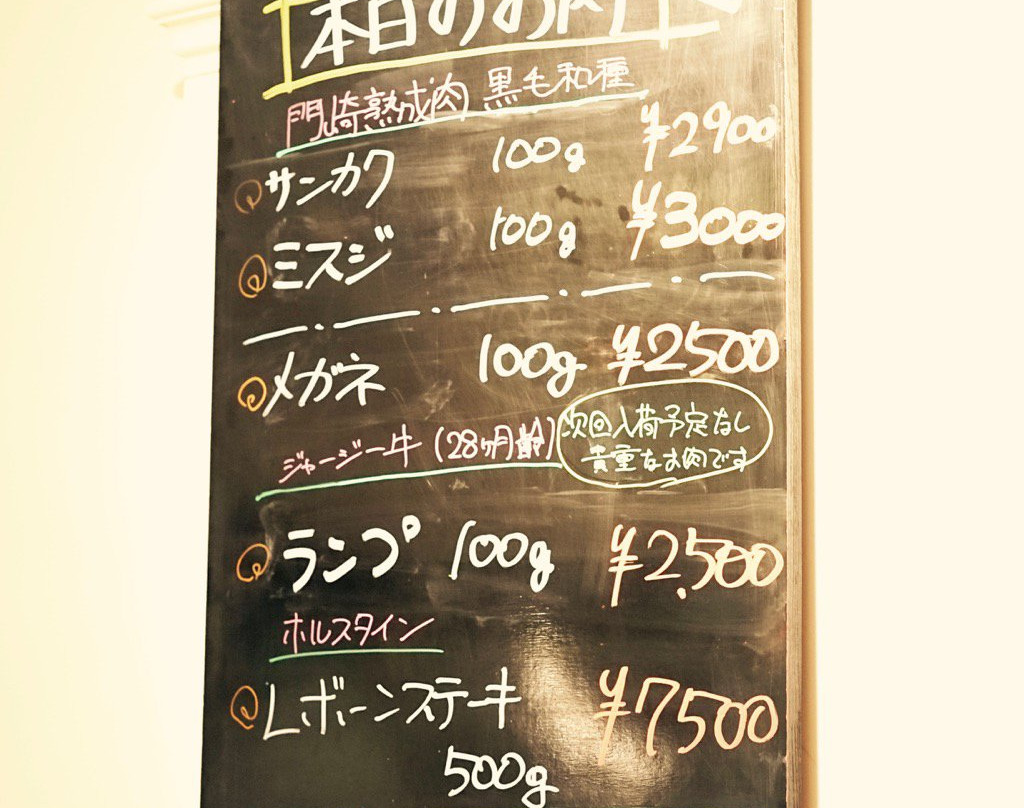 本日のお肉
門崎熟成肉 黒毛和種
サンカク 100g ¥2900
ミスジ 100g ¥3000
メガネ 100g ¥2500
ジャージー牛(28ヶ月齢)
次回入荷予定なし
貴重なお肉です
ランプ 100g ¥2,500
ホルスタイン
Lボーンステーキ ¥7500
500g